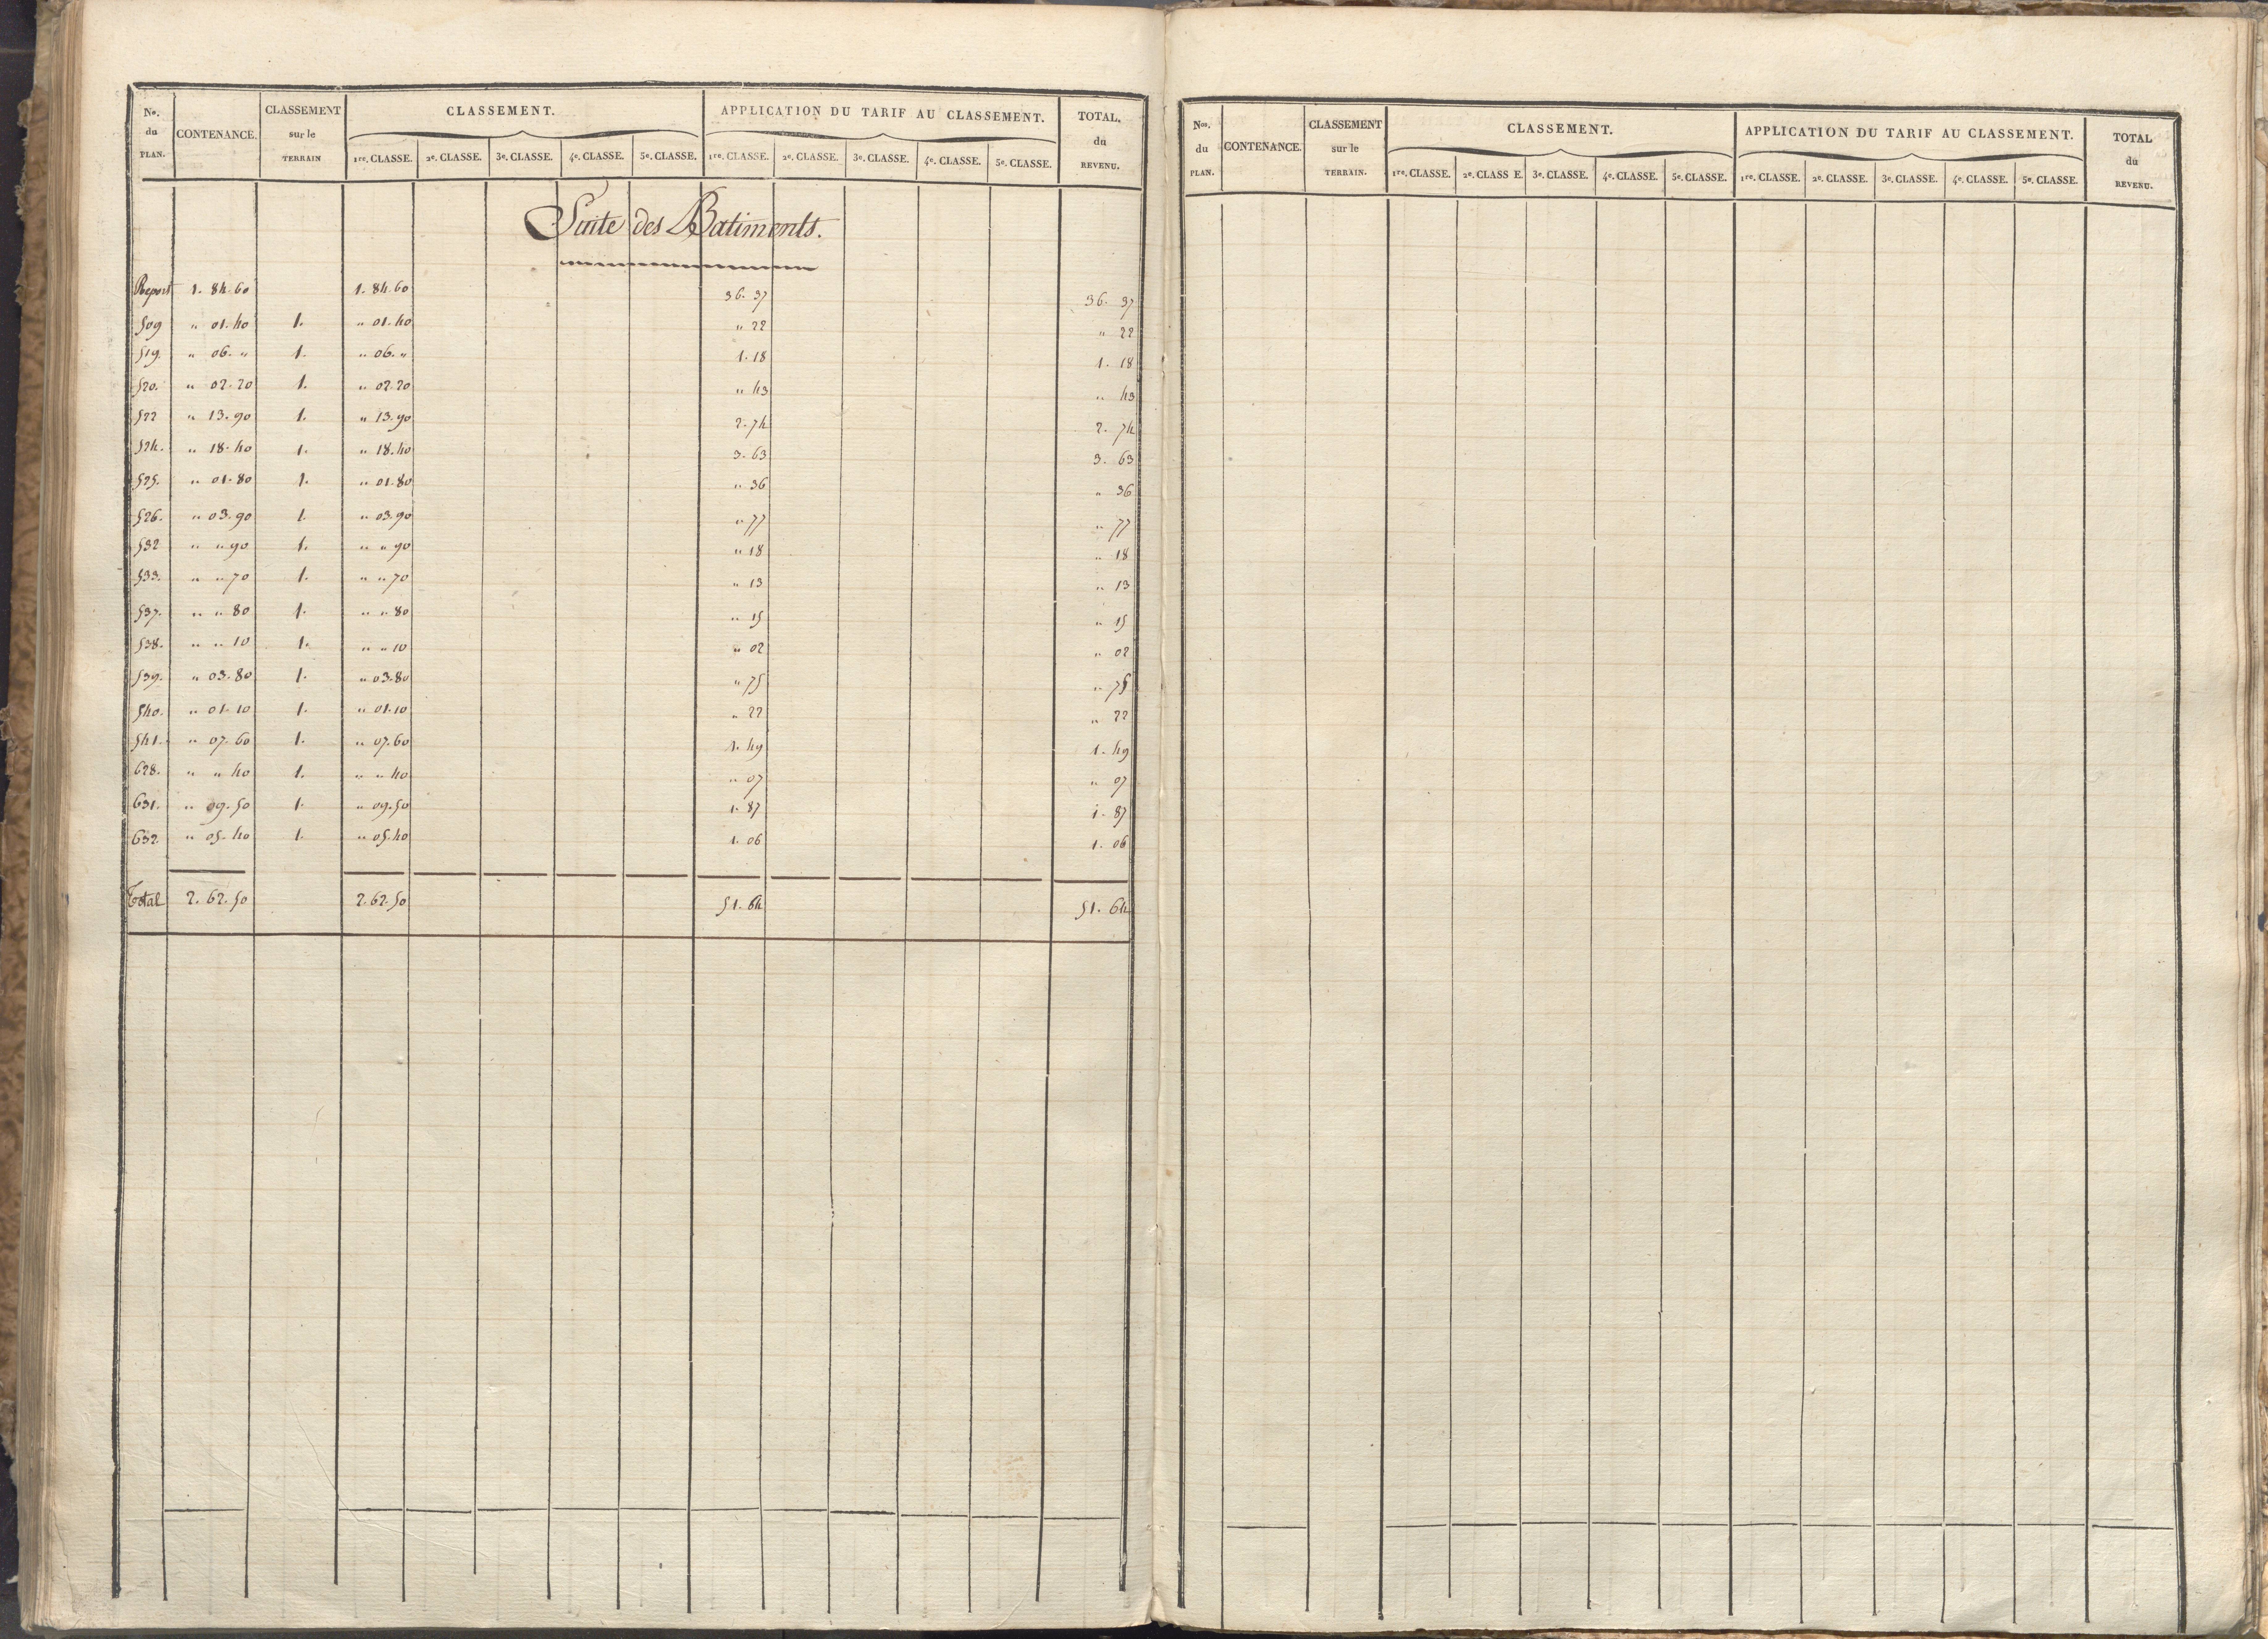 No. du PLAN. CONTENANCE. CLASSEMENT sur le TERRAIN CLASSEMENT. APPLICATION DU TARIF AU CLASSEMENT. TOTAL. du REVENU.
1re. CLASSE. 2e. CLASSE. 3e. CLASSE. 4e. CLASSE. 5e. CLASSE. 1re. CLASSE. 2e. CLASSE. 3e. CLASSE. 4e. CLASSE. 5e. CLASSE.
Suite des Batiments.
Report 1. 84. 60 1. 84. 60 36. 37 36. 37
509 " 01. 40 1. " 01. 40 " 22 " 22
519. " 06. " 1. " 06. " 1. 18 1. 18
520. " 02. 20 1. " 02. 20 " 43 " 43
522 " 13. 90 1. " 13. 90 2. 74 2. 74
524. " 18. 40 1. " 18. 40 3. 63 3. 63
525. " 01. 80 1. " 01. 80 " 36 " 36
526. " 03. 90 1. " 03. 90 " 77 " 77
532 " " 90 1. " " 90 " 18 " 18
533. " " 70 1. " " 70 " 13 " 13
537. " " 80 1. " " 80 " 15 " 15
538. " " 10 1. " " 10 " 02 " 02
539. " 03. 80 1. " 03. 80 " 75 " 75
540. " 01. 10 1. " 01. 10 " 22 " 22
541. " 07. 60 1. " 07. 60 1. 49 1. 49
628. " " 40 1. " " 40 " 07 " 07
631. " 09. 50 1. " 09. 50 1. 87 1. 87
632. " 05. 40 1. " 05. 40 1. 06 1. 06
Total 2. 62. 50 2. 62. 50 51. 64 51. 64
Nos. du PLAN. CONTENANCE. CLASSEMENT sur le TERRAIN. CLASSEMENT. APPLICATION DU TARIF AU CLASSEMENT. TOTAL du REVENU.
1re. CLASSE. 2e. CLASS E. 3e. CLASSE. 4e. CLASSE. 5e. CLASSE. 1re. CLASSE. 2e. CLASSE. 3e. CLASSE. 4e. CLASSE. 5e. CLASSE.